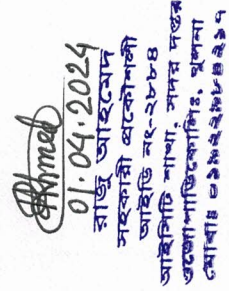 Ahmed
01.04.2024
রাজু আহমেদ
সহকারী প্রকৌশলী
আইডি নং-২৮৮৪
আইসিটি শাখা, সদর দপ্তর
ওজোপাডিকোলিঃ, খুলনা